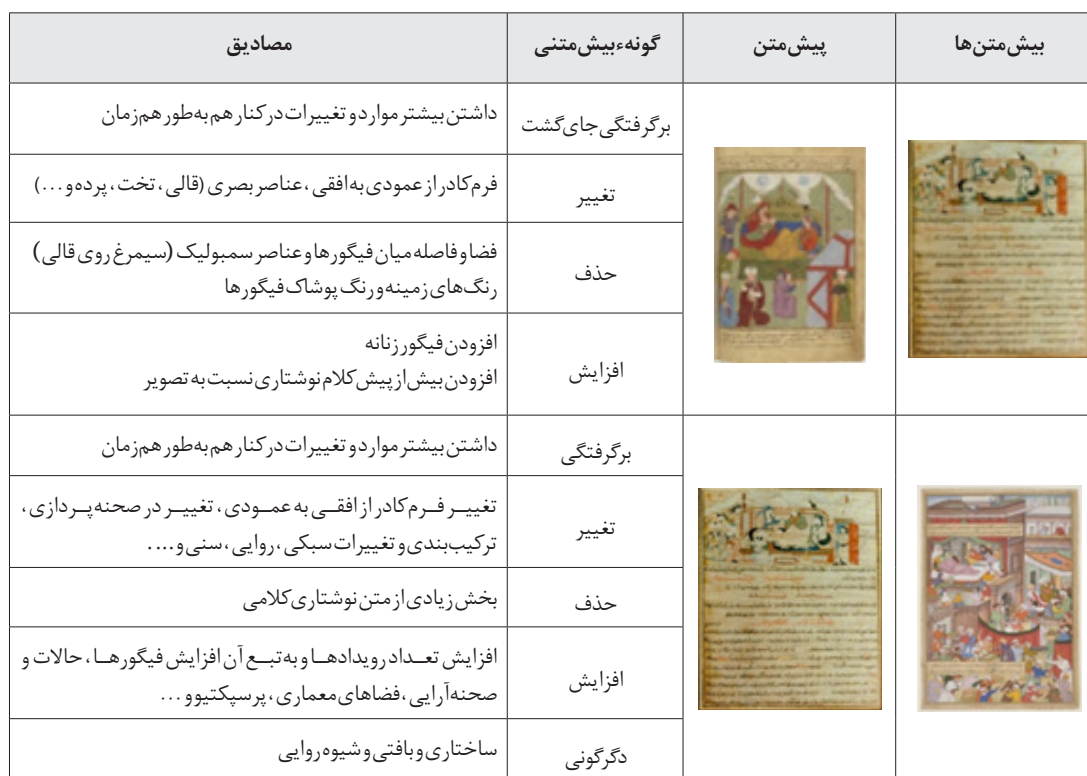 بیش‌متن‌ها	پیش‌متن	گونه‌ءبیش‌متنی	مصادیق
برگرفتگی جای‌گشت	داشتن بیشتر موارد و تغییرات در کنار هم به‌طور هم‌زمان
تغییر	فرم کادر از عمودی به افقی، عناصر بصری (قالی، تخت، پرده و...)
حذف	فضا و فاصله میان فیگورها و عناصر سمبولیک (سیمرغ روی قالی)
رنگ‌های زمینه و رنگ پوشاک فیگورها
افزایش	افزودن فیگور زنانه
افزودن بیش از پیش کلام نوشتاری نسبت به تصویر
برگرفتگی	داشتن بیشتر موارد و تغییرات در کنار هم به‌طور هم‌زمان
تغییر	تغییر فرم کادر از افقی به عمودی، تغییر در صحنه‌پردازی،
ترکیب‌بندی و تغییرات سبکی، روایی، سنی و....
حذف	بخش زیادی از متن نوشتاری کلامی
افزایش	افزایش تعداد رویدادها و به‌تبع آن افزایش فیگورها، حالات و
صحنه‌آرایی، فضاهای معماری، پرسپکتیو و...
دگرگونی	ساختاری و بافتی و شیوه روایی